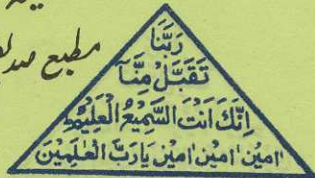 مطبع
رَبَّنَا
تَقَبَّلْ مِنَّآ
اِنَّكَ اَنْتَ السَّمِيْعُ الْعَلِيْمُ ط
اٰمِيْنَ اٰمِيْنَ اٰمِيْنَ يَارَبَّ الْعٰلَمِيْنَ